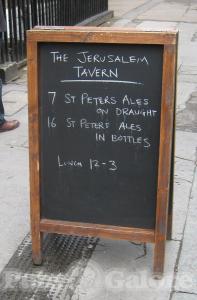 The Jerusalem
Tavern
7 St Peters Ales
on Draught
16 St Peters Ales
in Bottles
Lunch 12-3
Pubs Galore